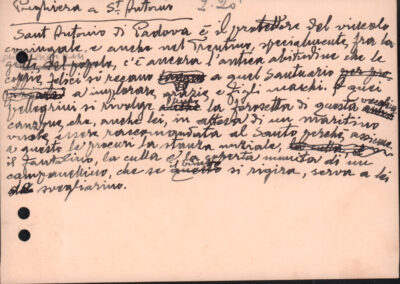 Preghiera a St. Antonio 2'20"
Sant'Antonio di Padova è il protettore del vincolo
coniugale, e anche nel Trentino, specialmente fra la
gente del popolo, c'è ancora l'antica abitudine che le
coppie felici si recano a quel Santuario per pre
a implorare grazie e figli maschi. E quei
pellegrini si rivolge la forosetta di questa vecchia
canzone, che, anche lei, in attesa di un maritino
vuole essere raccomandata al Santo perché, assieme
a questo le procuri la stanza nuziale,
il fantolino, la culla e la coperta munita di un
campanellino, che se il bimbo si rigira, serva a lei
da svegliarino.